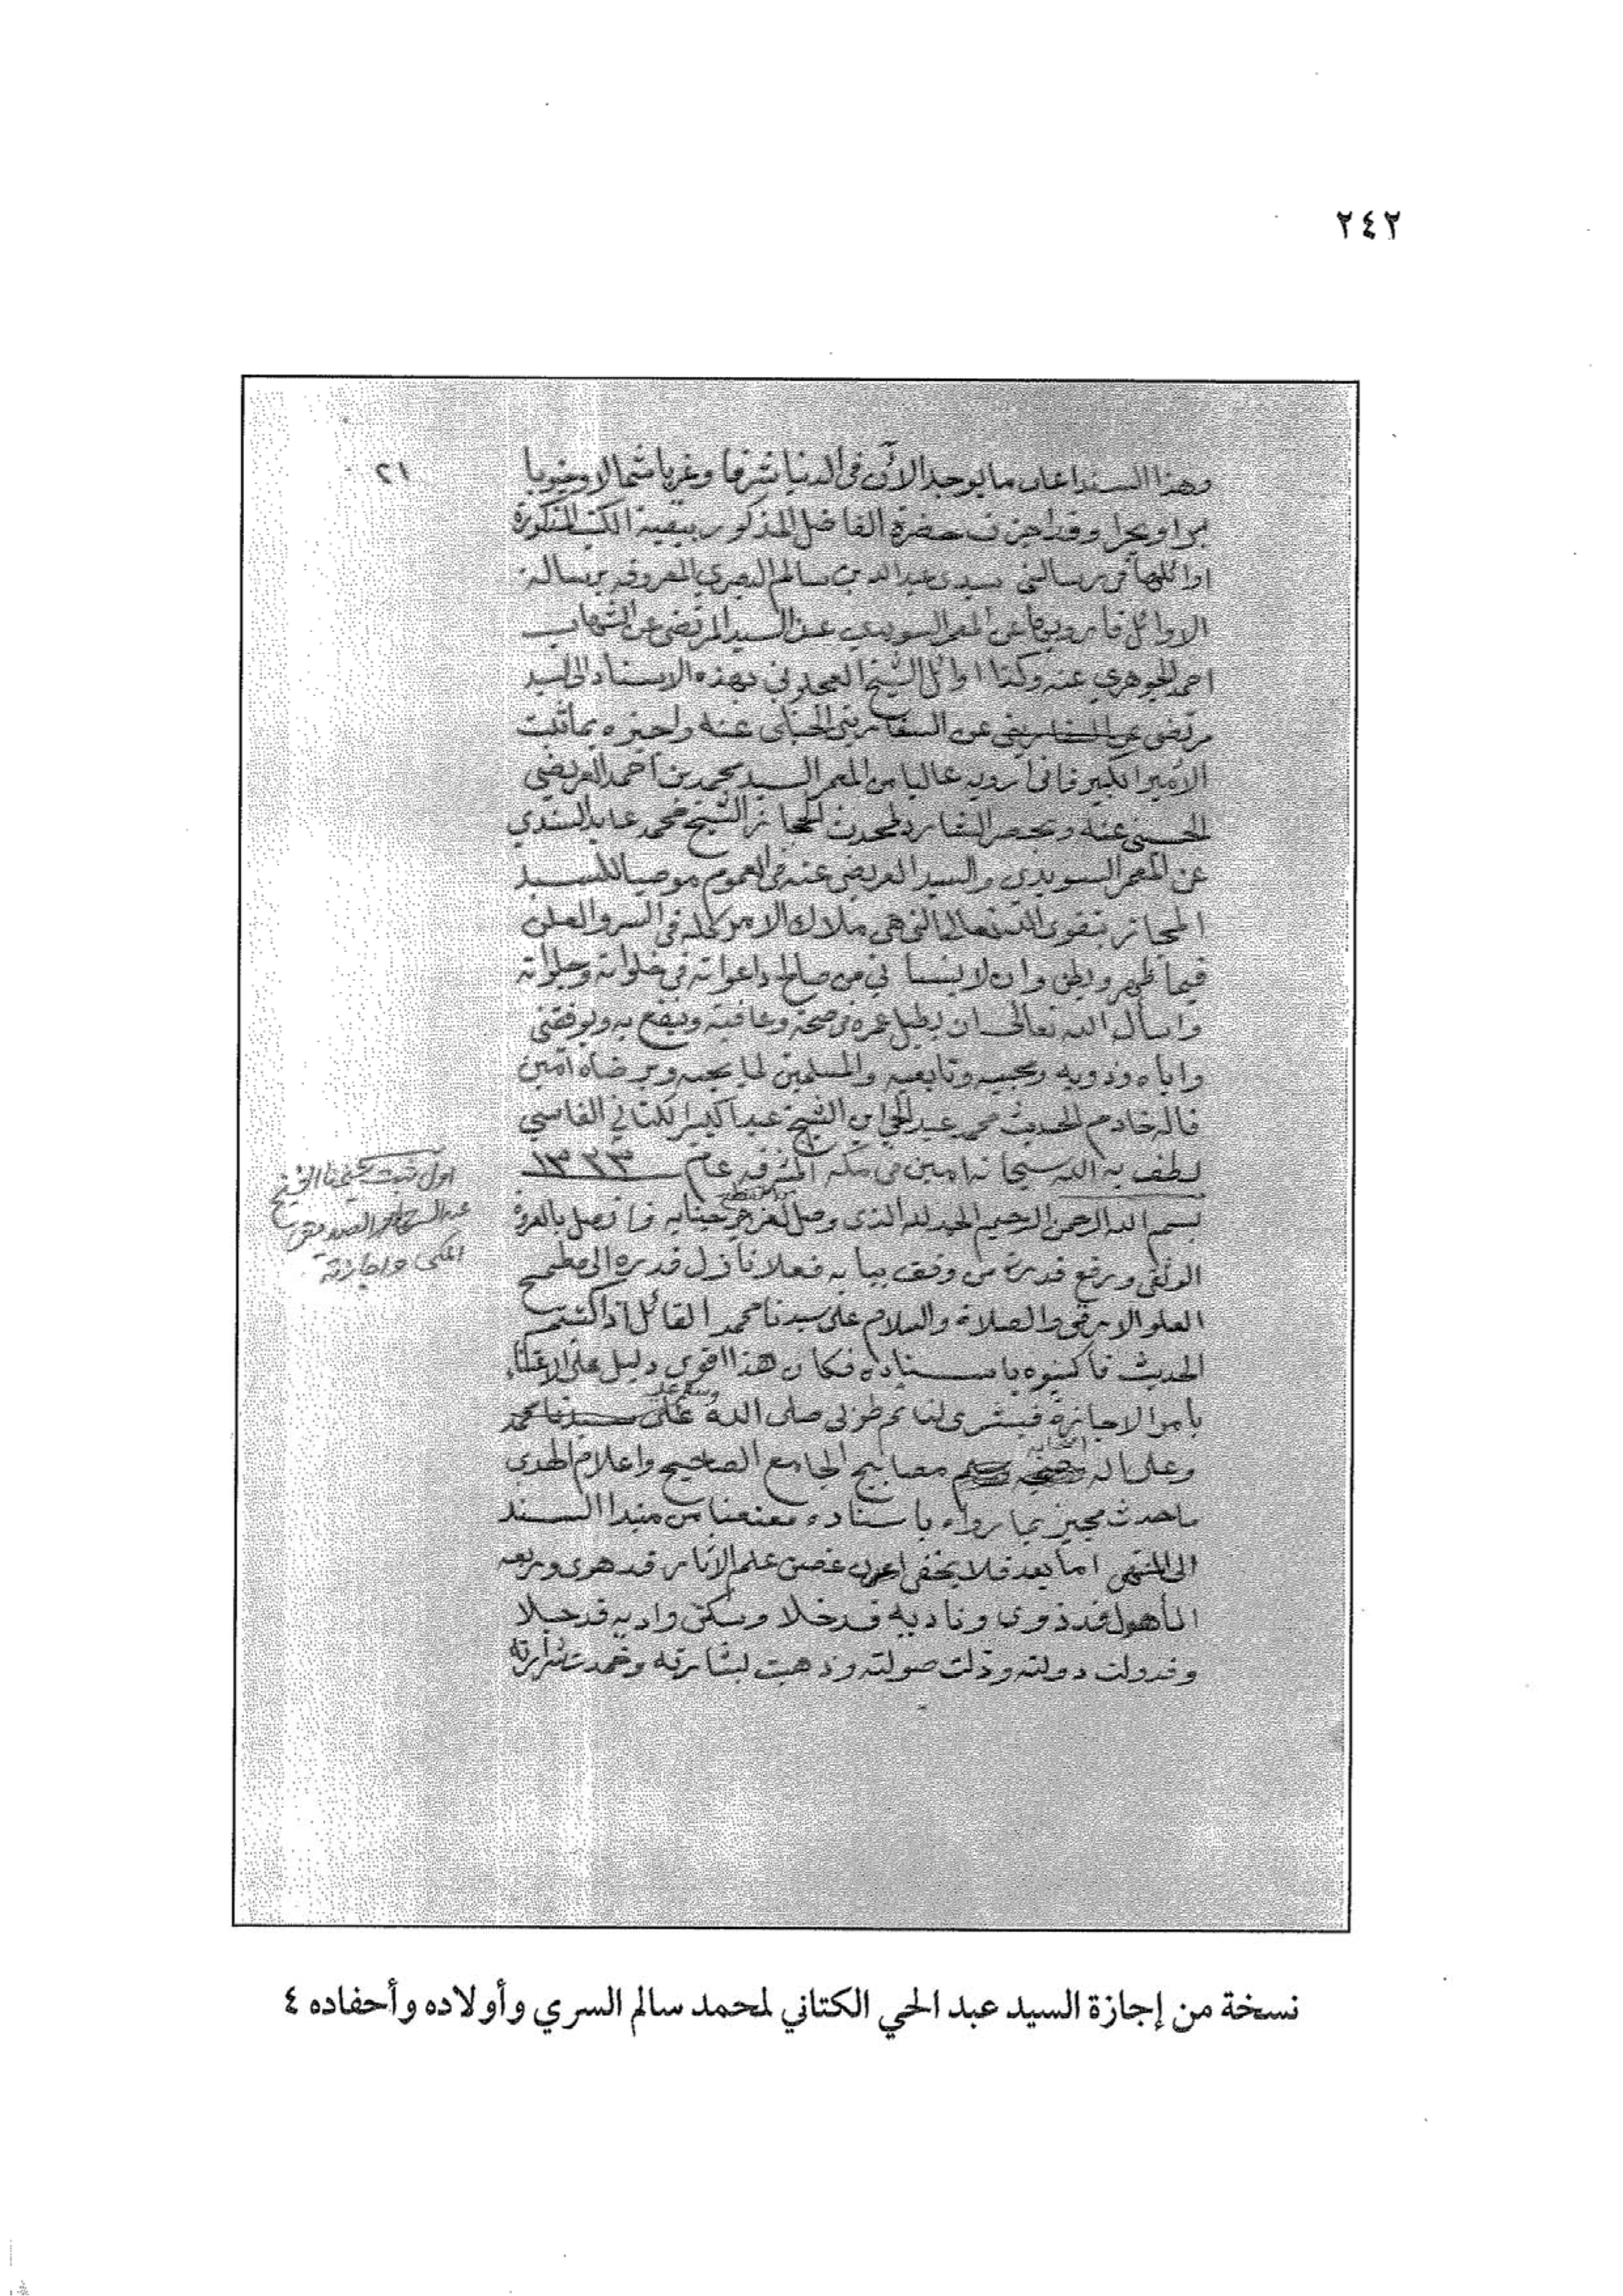 ٢٤٢
٢١
وهذا السند اعلى ما يوجد الآن فى الدنيا شرقا وغربا شمالا وجنوبا
برا وبحرا وقد اجزت حضرة الفاضل المذكور ببقية الكتب المذكورة
اوائلها فى رسالتى سيدى عبد الله بن سالم البصري المعروفة برسالة
الاوائل فأرويها عن المعمر السويدي عن السيد المرتضى عن الشهاب
احمد الجوهري عنه وكذا اوائل الشيخ العجلوني بهذه الاسناد الى السيد
مرتضى عن السفاريني الحنبلى عنه واجيزه بما ثبت
الأمير الكبير فانى أرويه عاليا من المعمر السيد محمد بن احمد العريضي
الحسينى عنه وبحصر الشارد لمحدث الحجاز الشيخ محمد عابد السندي
عن المعمر السويدي والسيد العريضى عنه فى العموم موصيا للسيد
المجاز بتقوى الله تعالى التى هى ملاك الامر كله فى السر والعلن
فيما ظهر وبطن وان لا ينسانى من صالح داعواته فى خلواته وجلواته
واسأل الله تعالى ان يطيل عمره فى صحة وعافية وينفع به ويوفقنى
واياه وذويه ومحبيه وتابعيه والمسلمين لما يحبه ويرضاه آمين
قاله خادم الحديث محمد عبد الحي ابن الشيخ عبد الكبير الكتاني الفاسي
لطف به الله سبحانه امين فى مكة المشرفة عام ١٣٢٣
اول ثبت شيخنا الشيخ
عبد الستار الصديقى
المكى واجازته
بسم الله الرحمن الرحيم الحمد لله الذى وصل لعزيز جنابه فاتصل بالعروة
الوثقى ورفع قدر من وقف ببابه فعلا نازل قدره الى مطمح
العلو الارقى والصلاة والسلام على سيدنا محمد القائل اذا كتبتم
الحديث فاكتبوه باسناده فكان هذا اقوى دليل على الاعتناء
بأمر الاجازة فبشرى لنا ثم طوبى صلى الله وسلم عليه
وعلى اله اصحابه مصابيح الجامع الصحيح واعلام الهدى
ما حدث مجيز بما رواه باسناده معنعنا من مبتدا السند
الى المنتهى اما بعد فلا يخفى ان غصن علم الآثار قد هوى وربعه
المأهول قد ذوى وناديه قد خلا وسكن واديه قد جلا
وقد ولت دولته وذلت صولته وذهبت بشارته وخمدت شرارته
نسخة من إجازة السيد عبد الحي الكتاني لمحمد سالم السري وأولاده وأحفاده ٤